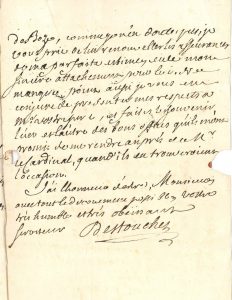 de Boze, comme
vous prie de lui renouveller les assurances
de ma parfaite estime, et de mon
sincere attachement pour lui. Ne
manquez point aussi je vous en
conjure de presenter mes respects a
et faites le souvenir
l'un et l'autre des bons offices qu'ils m'ont
promis de me rendre auprès de Mr
le Cardinal, quand ils en trouveroient
l'occasion.
J'ai l'honneur d'estre, Monsieur
avec tout le devouement possible, vostre
tres humble et tres obeissant
serviteur Destouches